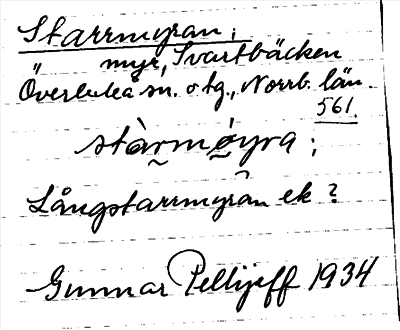 Starrmyran;
" myr, Svartbäcken
Överluleå sn. o tg., Norrb. län.
561.
stàrmøyra;
Långstarrmyran ek?
Gunnar Pellijeff 1934